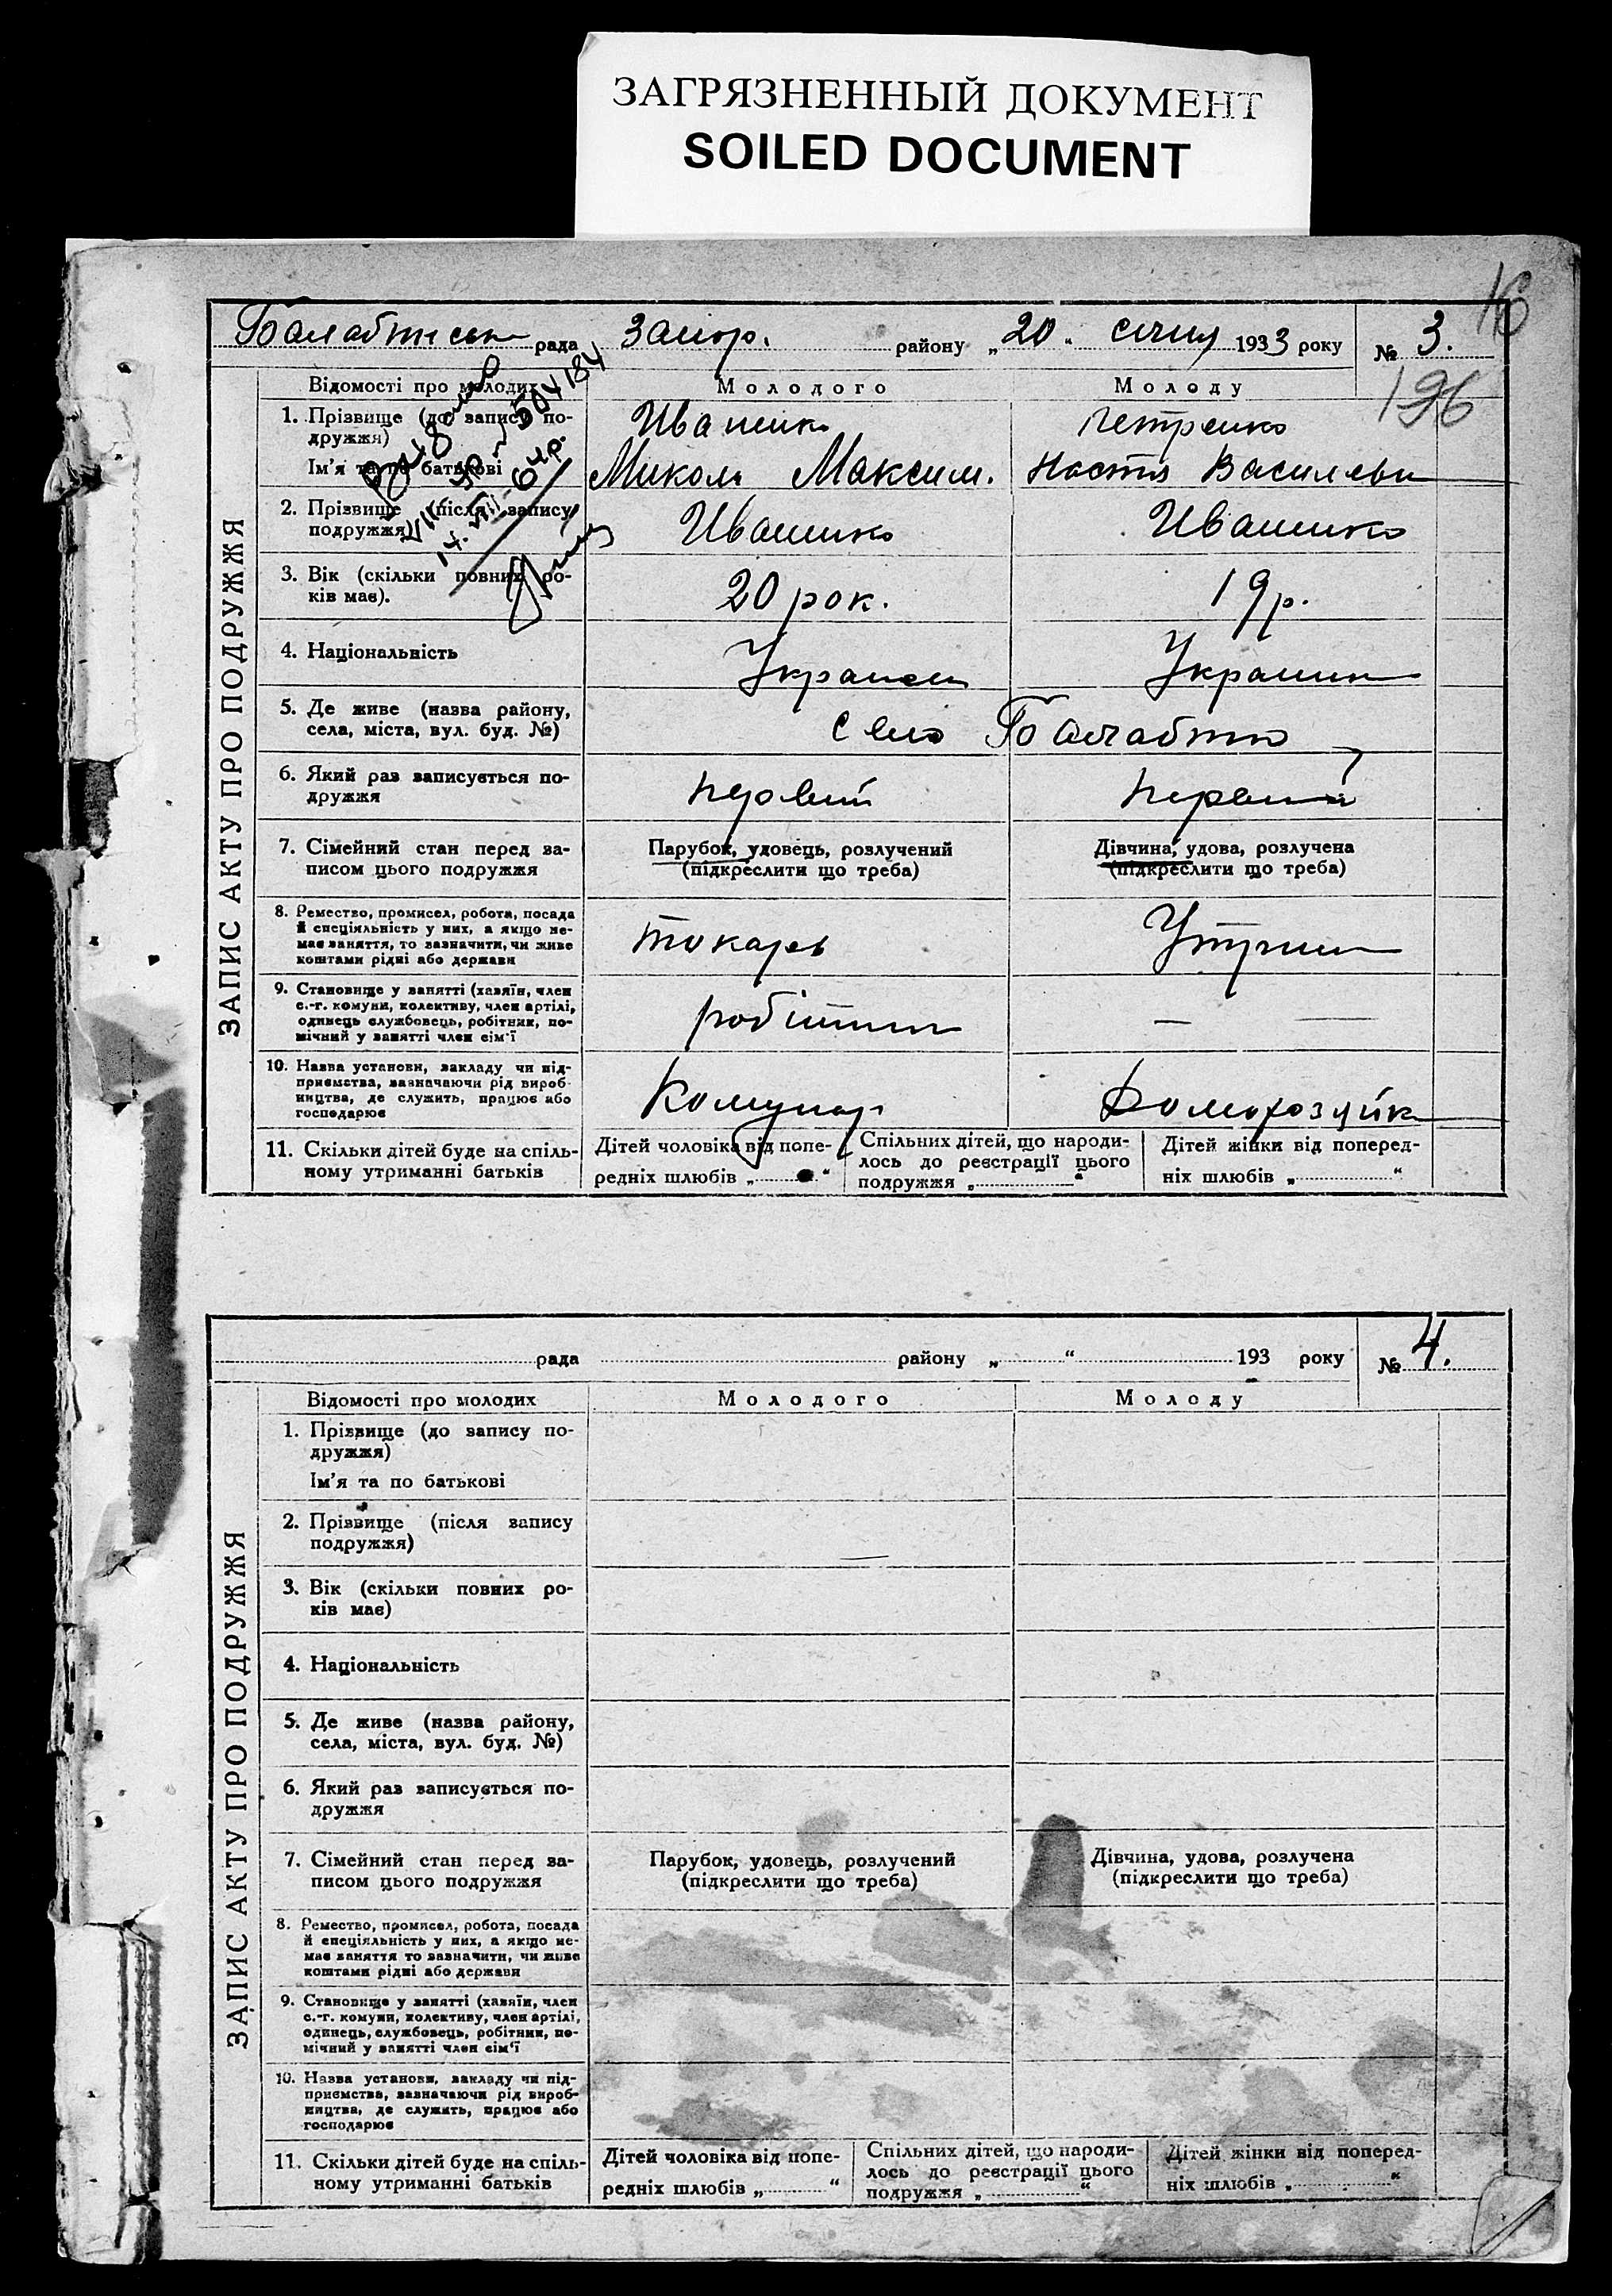 ЗАГРЯЗНЕННЫЙ ДОКУМЕНТ
SOILED DOCUMENT
16
рада Запор. району „20" січня 1933 року № 3.
196
ЗАПИС АКТУ ПРО ПОДРУЖЖЯ
Відомості про молодих Молодого Молоду
1. Прізвище (до запису по-
дружжя) Иваненко Петренко
Ім'я та по батькові Микола Максим. Настя Василевн
2. Прізвище (після запису
подружжя) Иваненко Иваненко
14.VIII-64р.
3. Вік (скільки повних ро-
ків має). 20 рок. 19 р.
4. Національність Украинец Украинк
5. Де живе (назва району,
села, міста, вул. буд. №) Село Балабино
6. Який раз записується по-
дружжя первий первий
7. Сімейний стан перед за-
писом цього подружжя
Парубок, удовець, розлучений
(підкреслити що треба)
Дівчина, удова, розлучена
(підкреслити що треба)
8. Ремество, промисел, робота, посада
й спеціяльність у них, а якщо не-
має заняття, то зазначити, чи живе
коштами рідні або держави
токарь
9. Становище у занятті (хазяїн, член
с.-г. комуни, колективу, член артілі,
одинець службовець, робітник, по-
мічний у занятті член сім'ї
робітник — —
10. Назва установи, закладу чи під-
приємства, зазначаючи рід вироб-
ництва, де служить, працює або
господарює
Комунар Домохозяйк
11. Скільки дітей буде на спіль-
ному утриманні батьків
Дітей чоловіка від попе-
редніх шлюбів „ "
Спільних дітей, що народи-
лось до реєстрації цього
подружжя „ "
Дітей жінки від поперед-
ніх шлюбів „ "
рада району „ " 193 року № 4.
ЗАПИС АКТУ ПРО ПОДРУЖЖЯ
Відомості про молодих Молодого Молоду
1. Прізвище (до запису по-
дружжя)
Ім'я та по батькові
2. Прізвище (після запису
подружжя)
3. Вік (скільки повних ро-
ків має)
4. Національність
5. Де живе (назва району,
села, міста, вул. буд. №)
6. Який раз записується по-
дружжя
7. Сімейний стан перед за-
писом цього подружжя
Парубок, удовець, розлучений
(підкреслити що треба)
Дівчина, удова, розлучена
(підкреслити що треба)
8. Ремество, промисел, робота, посада
й спеціяльність у них, а якщо не-
має заняття то зазначити, чи живе
коштами рідні або держави
9. Становище у занятті (хазяїн, член
с.-г. комуни, колективу, член артілі,
одинець, службовець, робітник, по-
мічний у занятті член сім'ї
10. Назва установи, закладу чи під-
приємства, зазначаючи рід вироб-
ництва, де служить, працює або
господарює
11. Скільки дітей буде на спіль-
ному утриманні батьків
Дітей чоловіка від попе-
редніх шлюбів „ "
Спільних дітей, що народи-
лось до реєстрації цього
подружжя „ "
Дітей жінки від поперед-
ніх шлюбів „ "